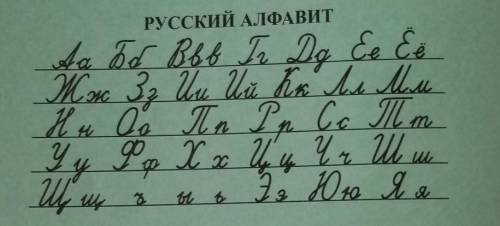 РУССКИЙ АЛФАВИТ
Аа Бб Ввв Гг Дд Ее Ёё
Жж Зз Ии Ий Кк Лл Мм
Нн Оо Пп Рр Сс Тт
Уу Фф Хх Цц Чч Шш
Щщ ъ ы ь Ээ Юю Яя